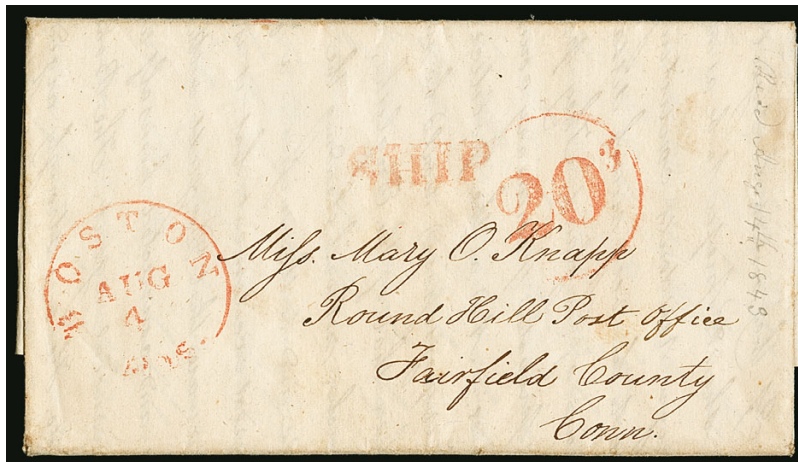 SHIP
20
3
BOSTON
AUG
4
MAS.
Miſs. Mary O. Knapp
Round Hill Post Office
Fairfield County
Conn.
1843